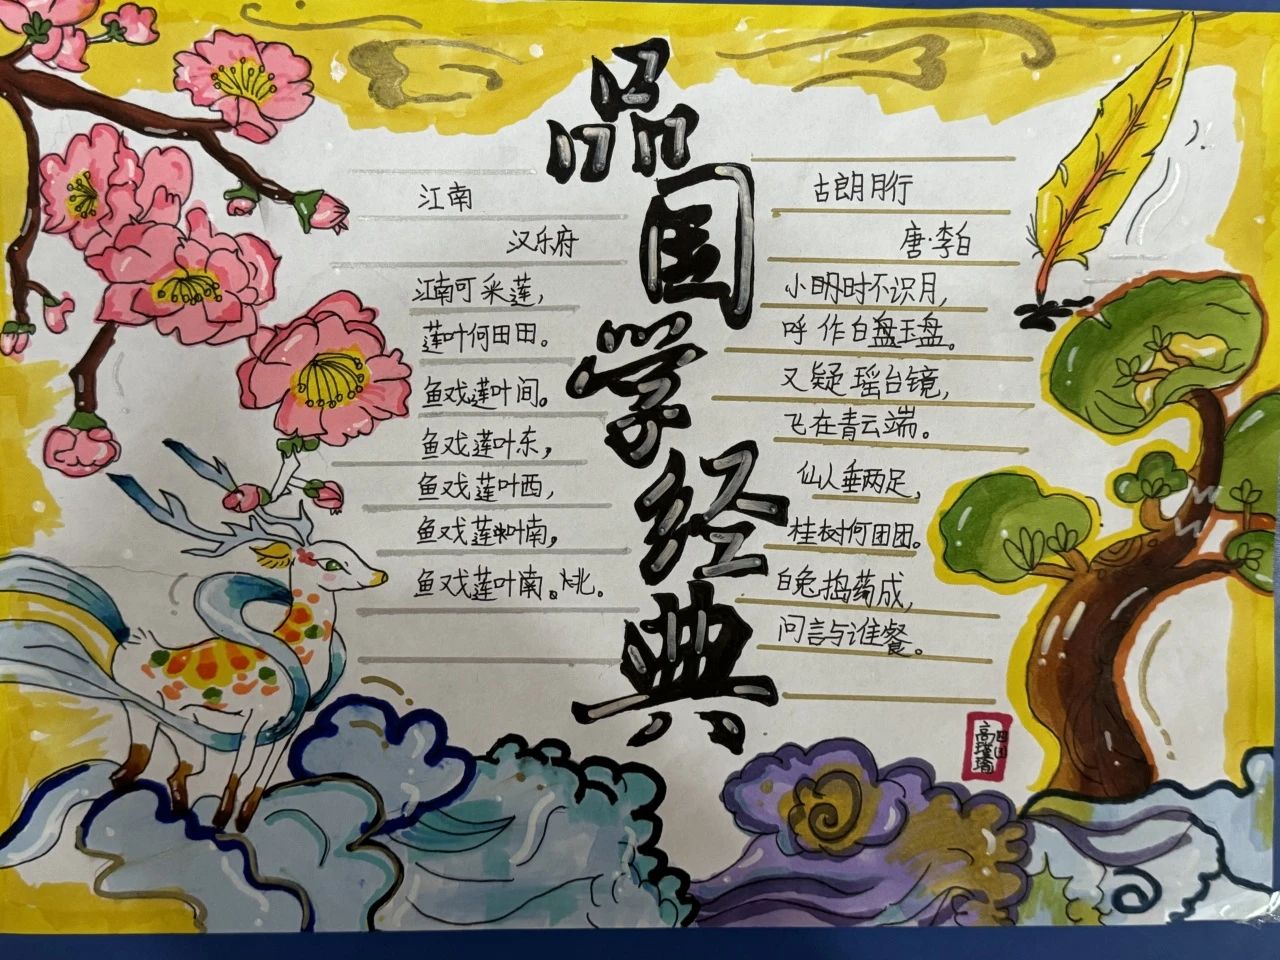 品国学经典
江南
汉乐府
江南可采莲，
莲叶何田田。
鱼戏莲叶间。
鱼戏莲叶东，
鱼戏莲叶西，
鱼戏莲叶南，
鱼戏莲叶南。北。
古朗月行
唐·李白
小时不识月，
呼作白盘玉盘。
又疑瑶台镜，
飞在青云端。
仙人垂两足，
桂树何团团。
白兔捣药成，
问言与谁餐。
高瑾瑜